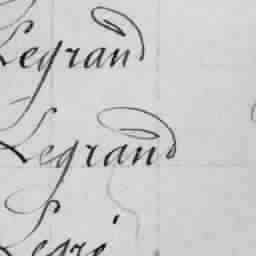 Legrand
Legrand
Legré